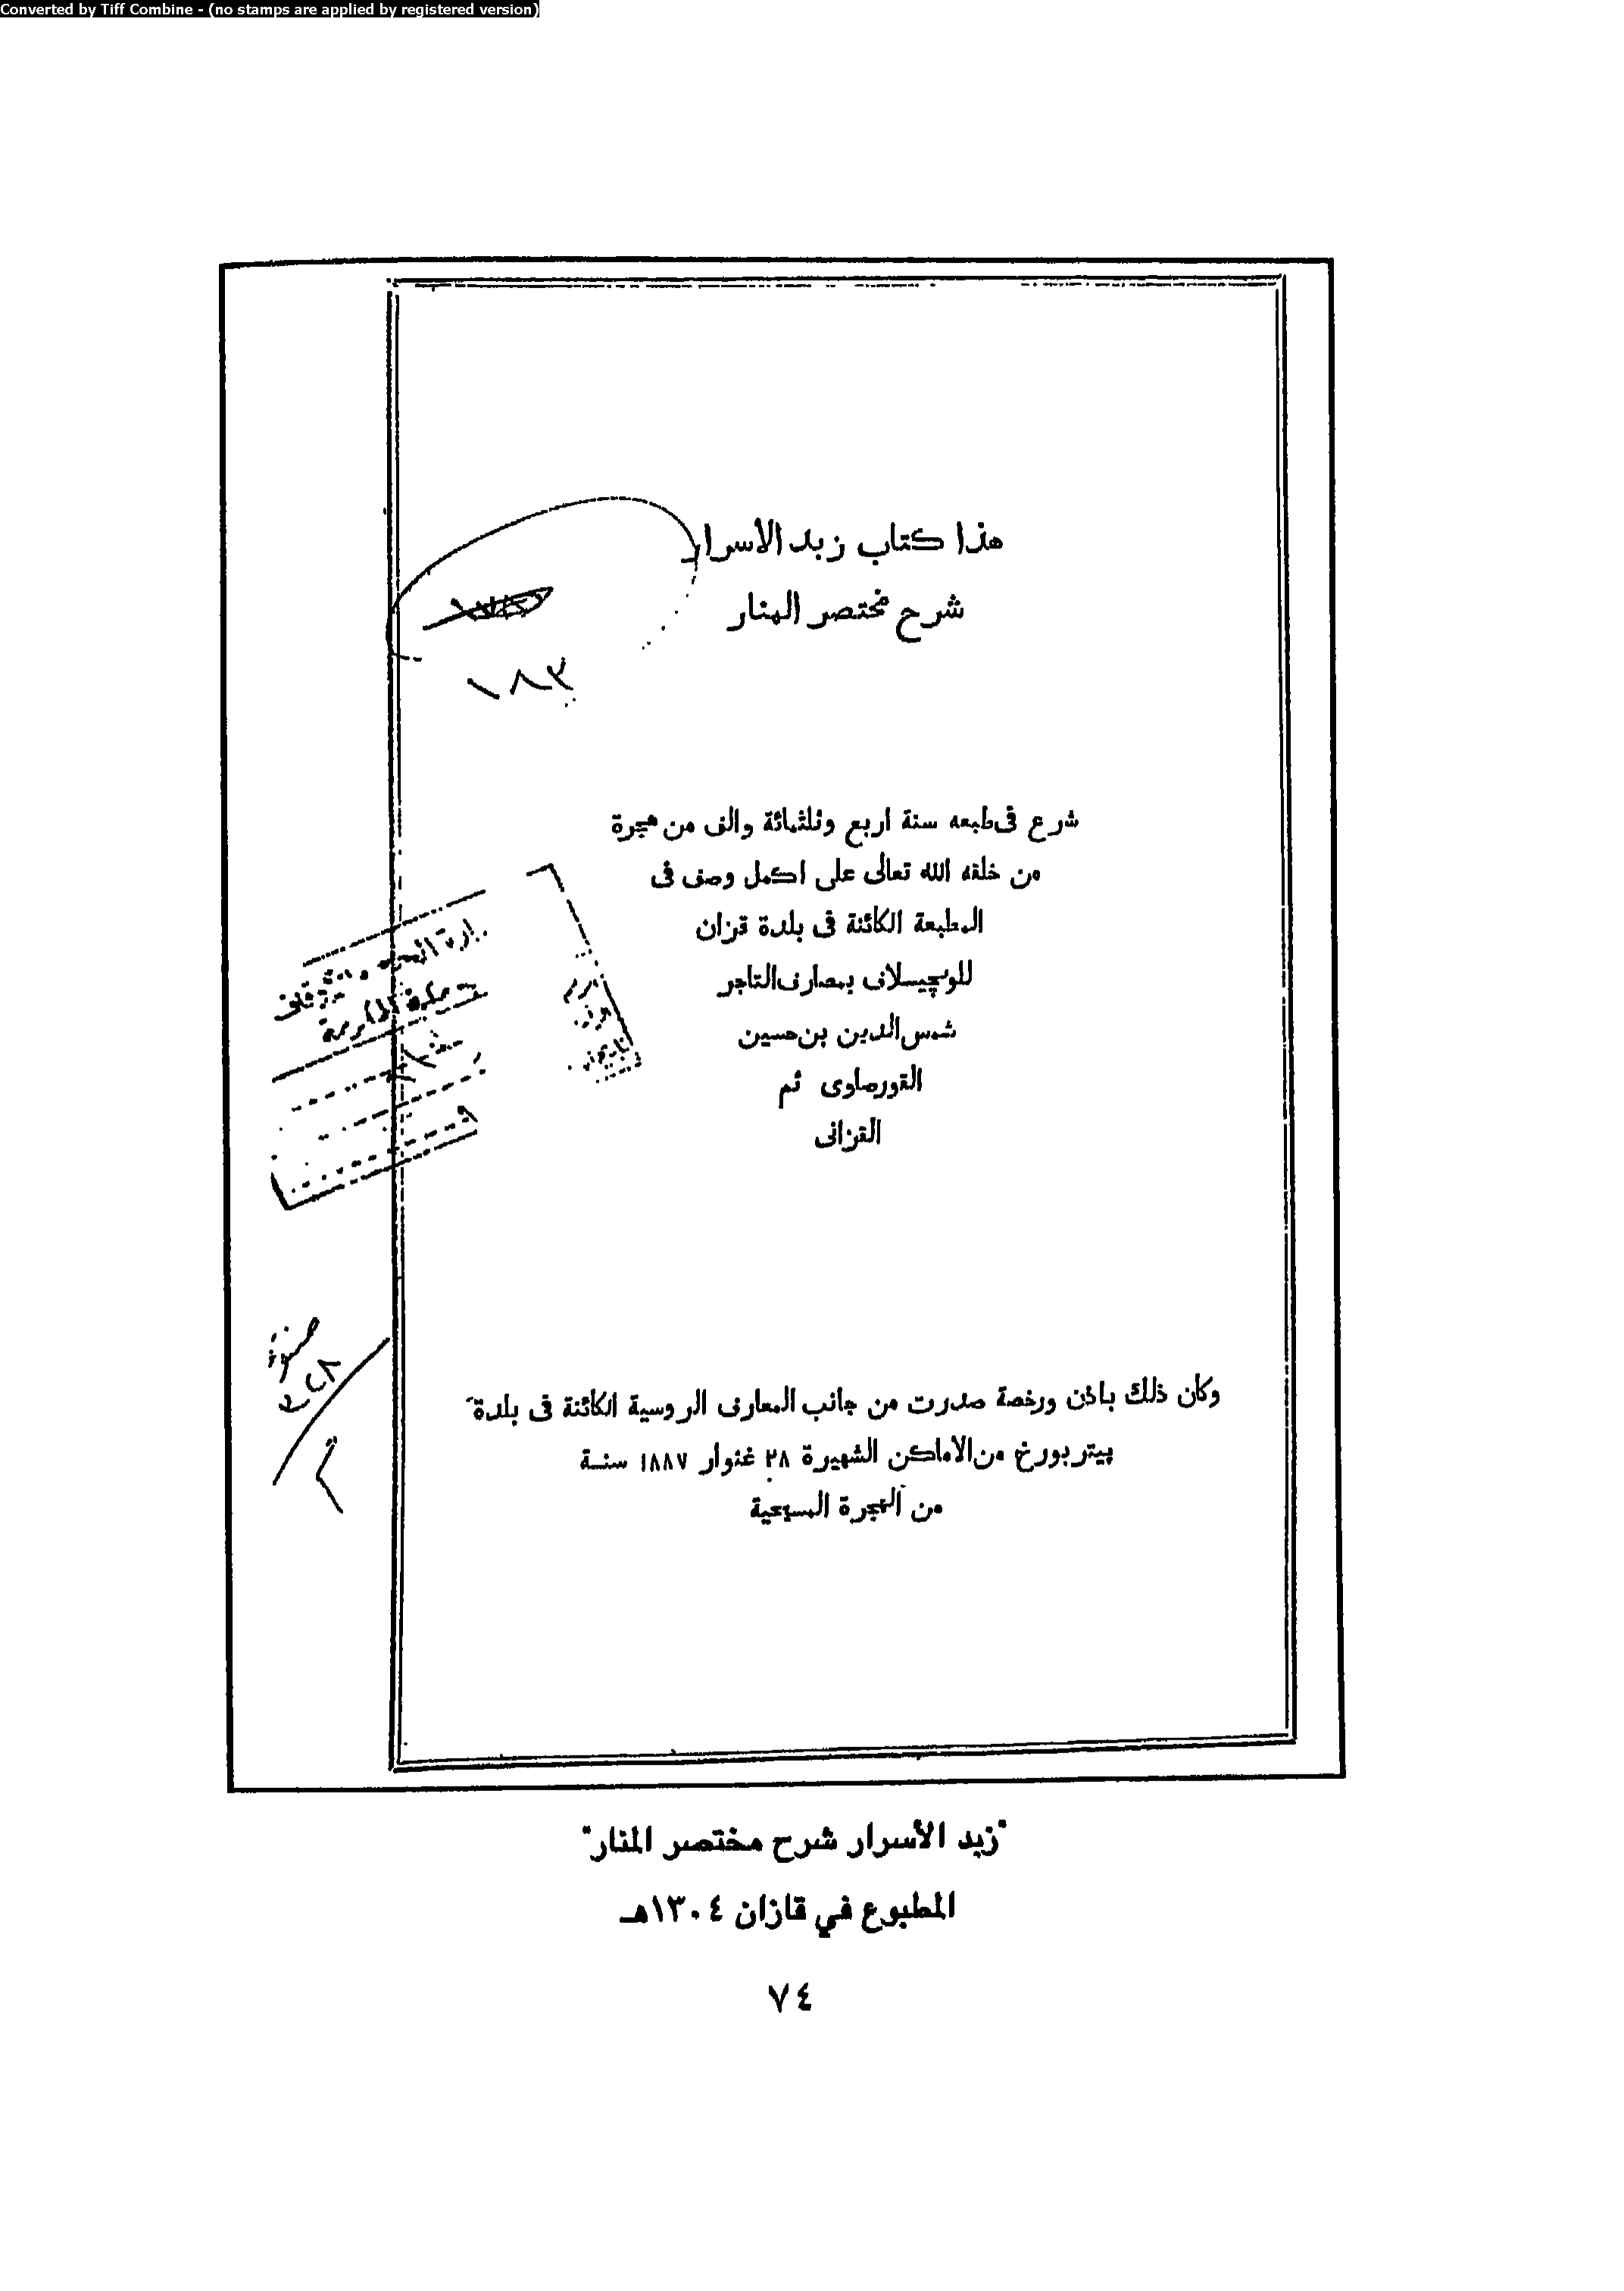 Converted by Tiff Combine - (no stamps are applied by registered version)
هذا كتاب زبد الاسرار
شرح مختصر المنار
١٨٣
شرع فى طبعه سنة اربع وثلثمائة والف من هجرة
من خلقه الله تعالى على اكمل وصف فى
المطبعة الكائنة فى بلدة قزان
للوچيسلاف بمصارف التاجر
شمس الدين بن حسين
القورصاوى ثم
القزانى
وكان ذلك باذن ورخصة صدرت من جانب المعارف الروسية الكائنة فى بلدة
پيتربورغ من الاماكن الشهيرة ٢٨ غنوار ١٨٨٧ سنة
من الهجرة المسيحية
"زبد الأسرار شرح مختصر المنار"
المطبوع في قازان ١٣٠٤هـ
٧٤